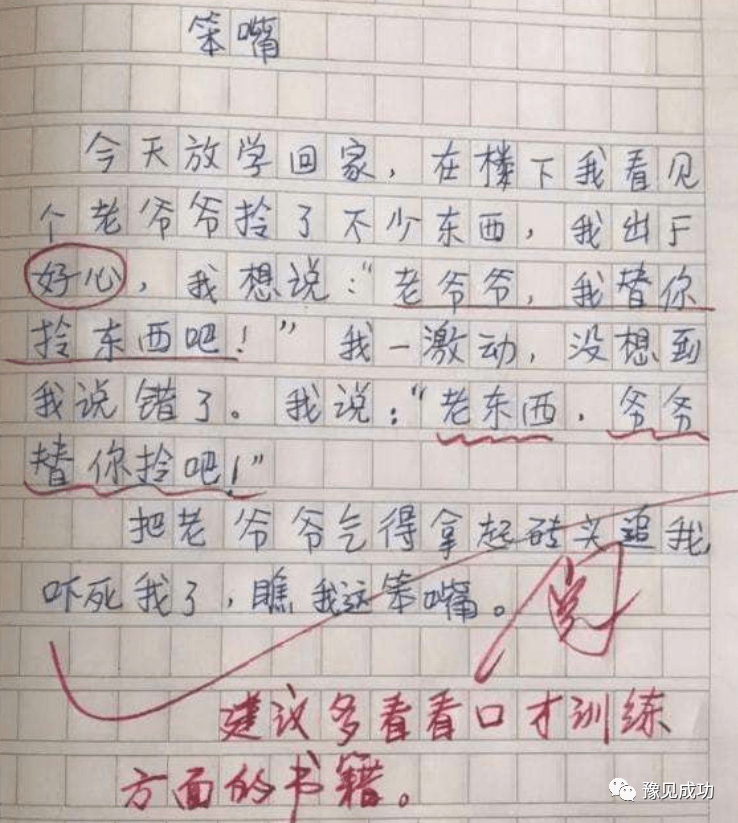 笨嘴
今天放学回家，在楼下我看见
个老爷爷拎了不少东西，我出于
好心，我想说："老爷爷，我替你
拎东西吧！"我一激动，没想到
我说错了。我说："老东西，爷爷
替你拎吧！"
把老爷爷气得拿起砖头追我，
吓死我了，瞧我这笨嘴。
阅
建议多看看口才训练
方面的书籍。
豫见成功